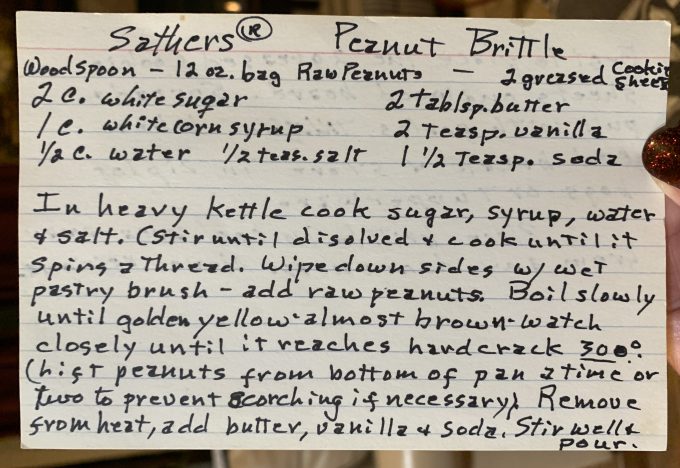 Sathers® Peanut Brittle
Wood spoon - 12 oz. bag Raw Peanuts - 2 greased Cookie Sheets
2 c. white sugar 2 tablsp. butter
1 c. white corn syrup 2 Teasp. vanilla
1/2 c. water 1/2 teas. salt 1 1/2 Teasp. soda
In heavy kettle cook sugar, syrup, water
& salt. (Stir until disolved & cook until it
spins a thread. Wipe down sides w/ wet
pastry brush - add raw peanuts. Boil slowly
until golden yellow - almost brown - watch
closely until it reaches hard crack 300°.
(hist peanuts from bottom of pan a time or
two to prevent scorching if necessary) Remove
from heat, add butter, vanilla & soda. Stir well &
pour.